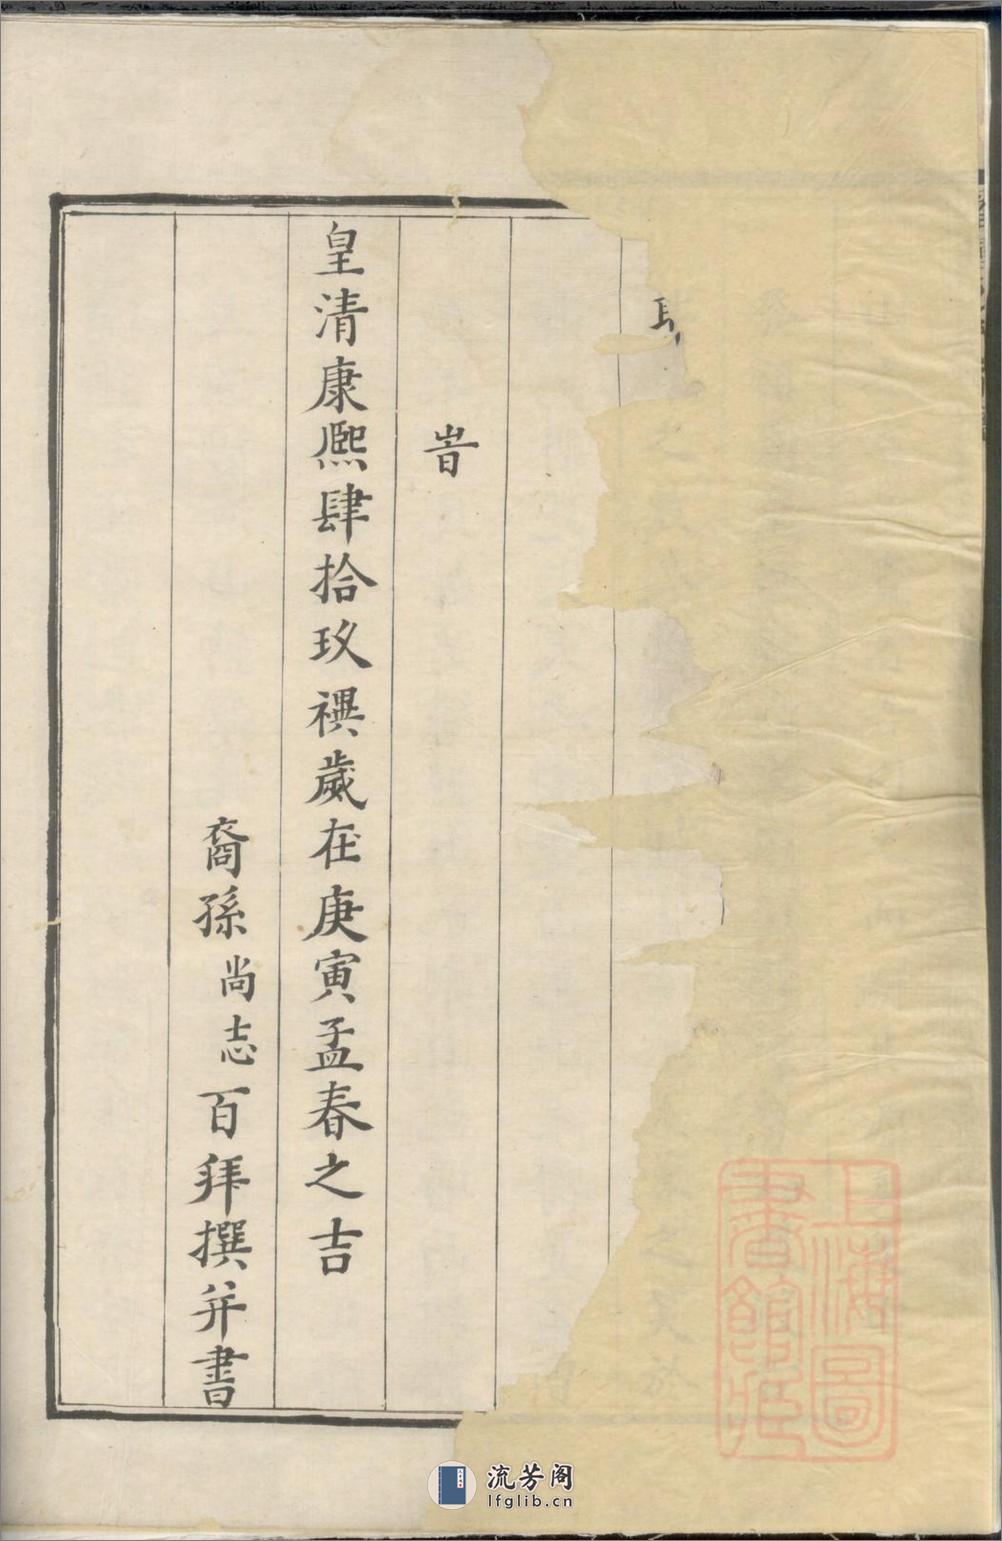 旹
皇清康熙肆拾玖禩歲在庚寅孟春之吉
裔孫尚志百拜撰并書
上海圖書館藏
流芳阁
lfglib.cn